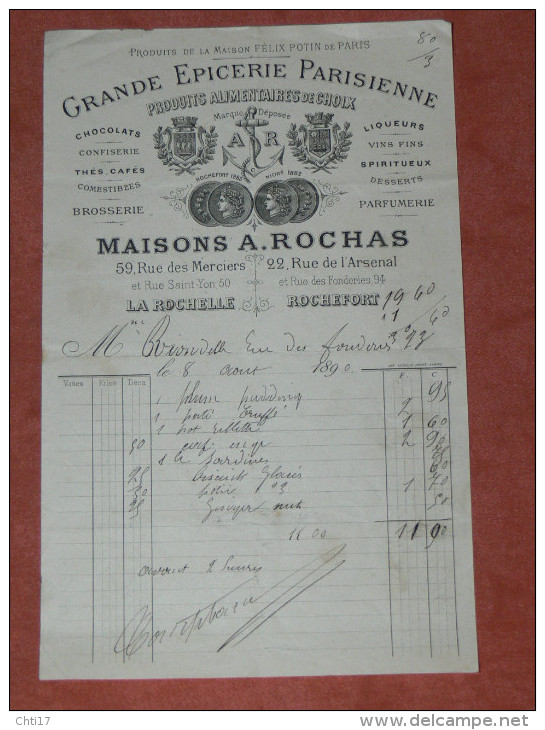 80/3
PRODUITS DE LA MAISON FÉLIX POTIN DE PARIS
GRANDE EPICERIE PARISIENNE
PRODUITS ALIMENTAIRES DE CHOIX
Marque Déposée
A R
CHOCOLATS
CONFISERIE
THÉS, CAFÉS
COMESTIBLES
BROSSERIE
LIQUEURS
VINS FINS
SPIRITUEUX
DESSERTS
PARFUMERIE
ROCHEFORT 1883 NIORT 1882
MAISONS A. ROCHAS
59, Rue des Merciers 22, Rue de l'Arsenal
et Rue Saint-Yon 50 et Rue des Fonderies, 94
LA ROCHELLE ROCHEFORT
19 60
1 60
M rue des fonderies
le 8 Aout 1890
95
1 plum pudding
1 paté truffé 2
1 pot rillette 1 60
50 2 90
1 Bte sardines
25 biscuits glacés
50 1 70
25 50
11 00 11 90
avant 2 heures
Chti17
www.delcampe.net